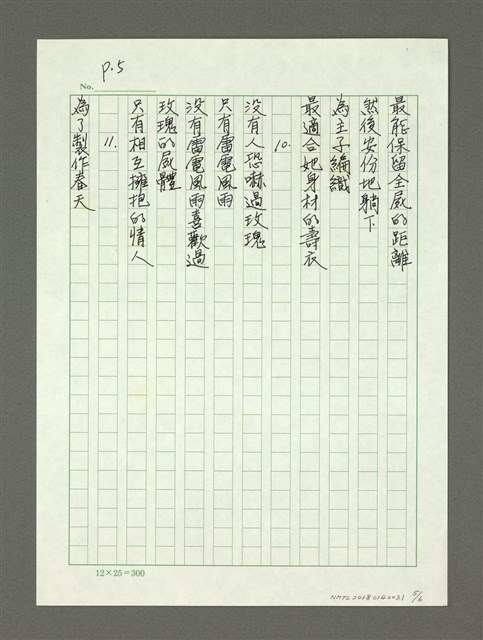 P.5
No.
最能保留全屍的距離
然後安份地躺下
為主子編織
最適合她身材的壽衣
10.
沒有人恐嚇過玫瑰
只有雷電風雨
沒有雷電風雨喜歡過
玫瑰的屍體
只有相互擁抱的情人
11.
為了製作春天
12×25=300
NMTL20180140031
5/6